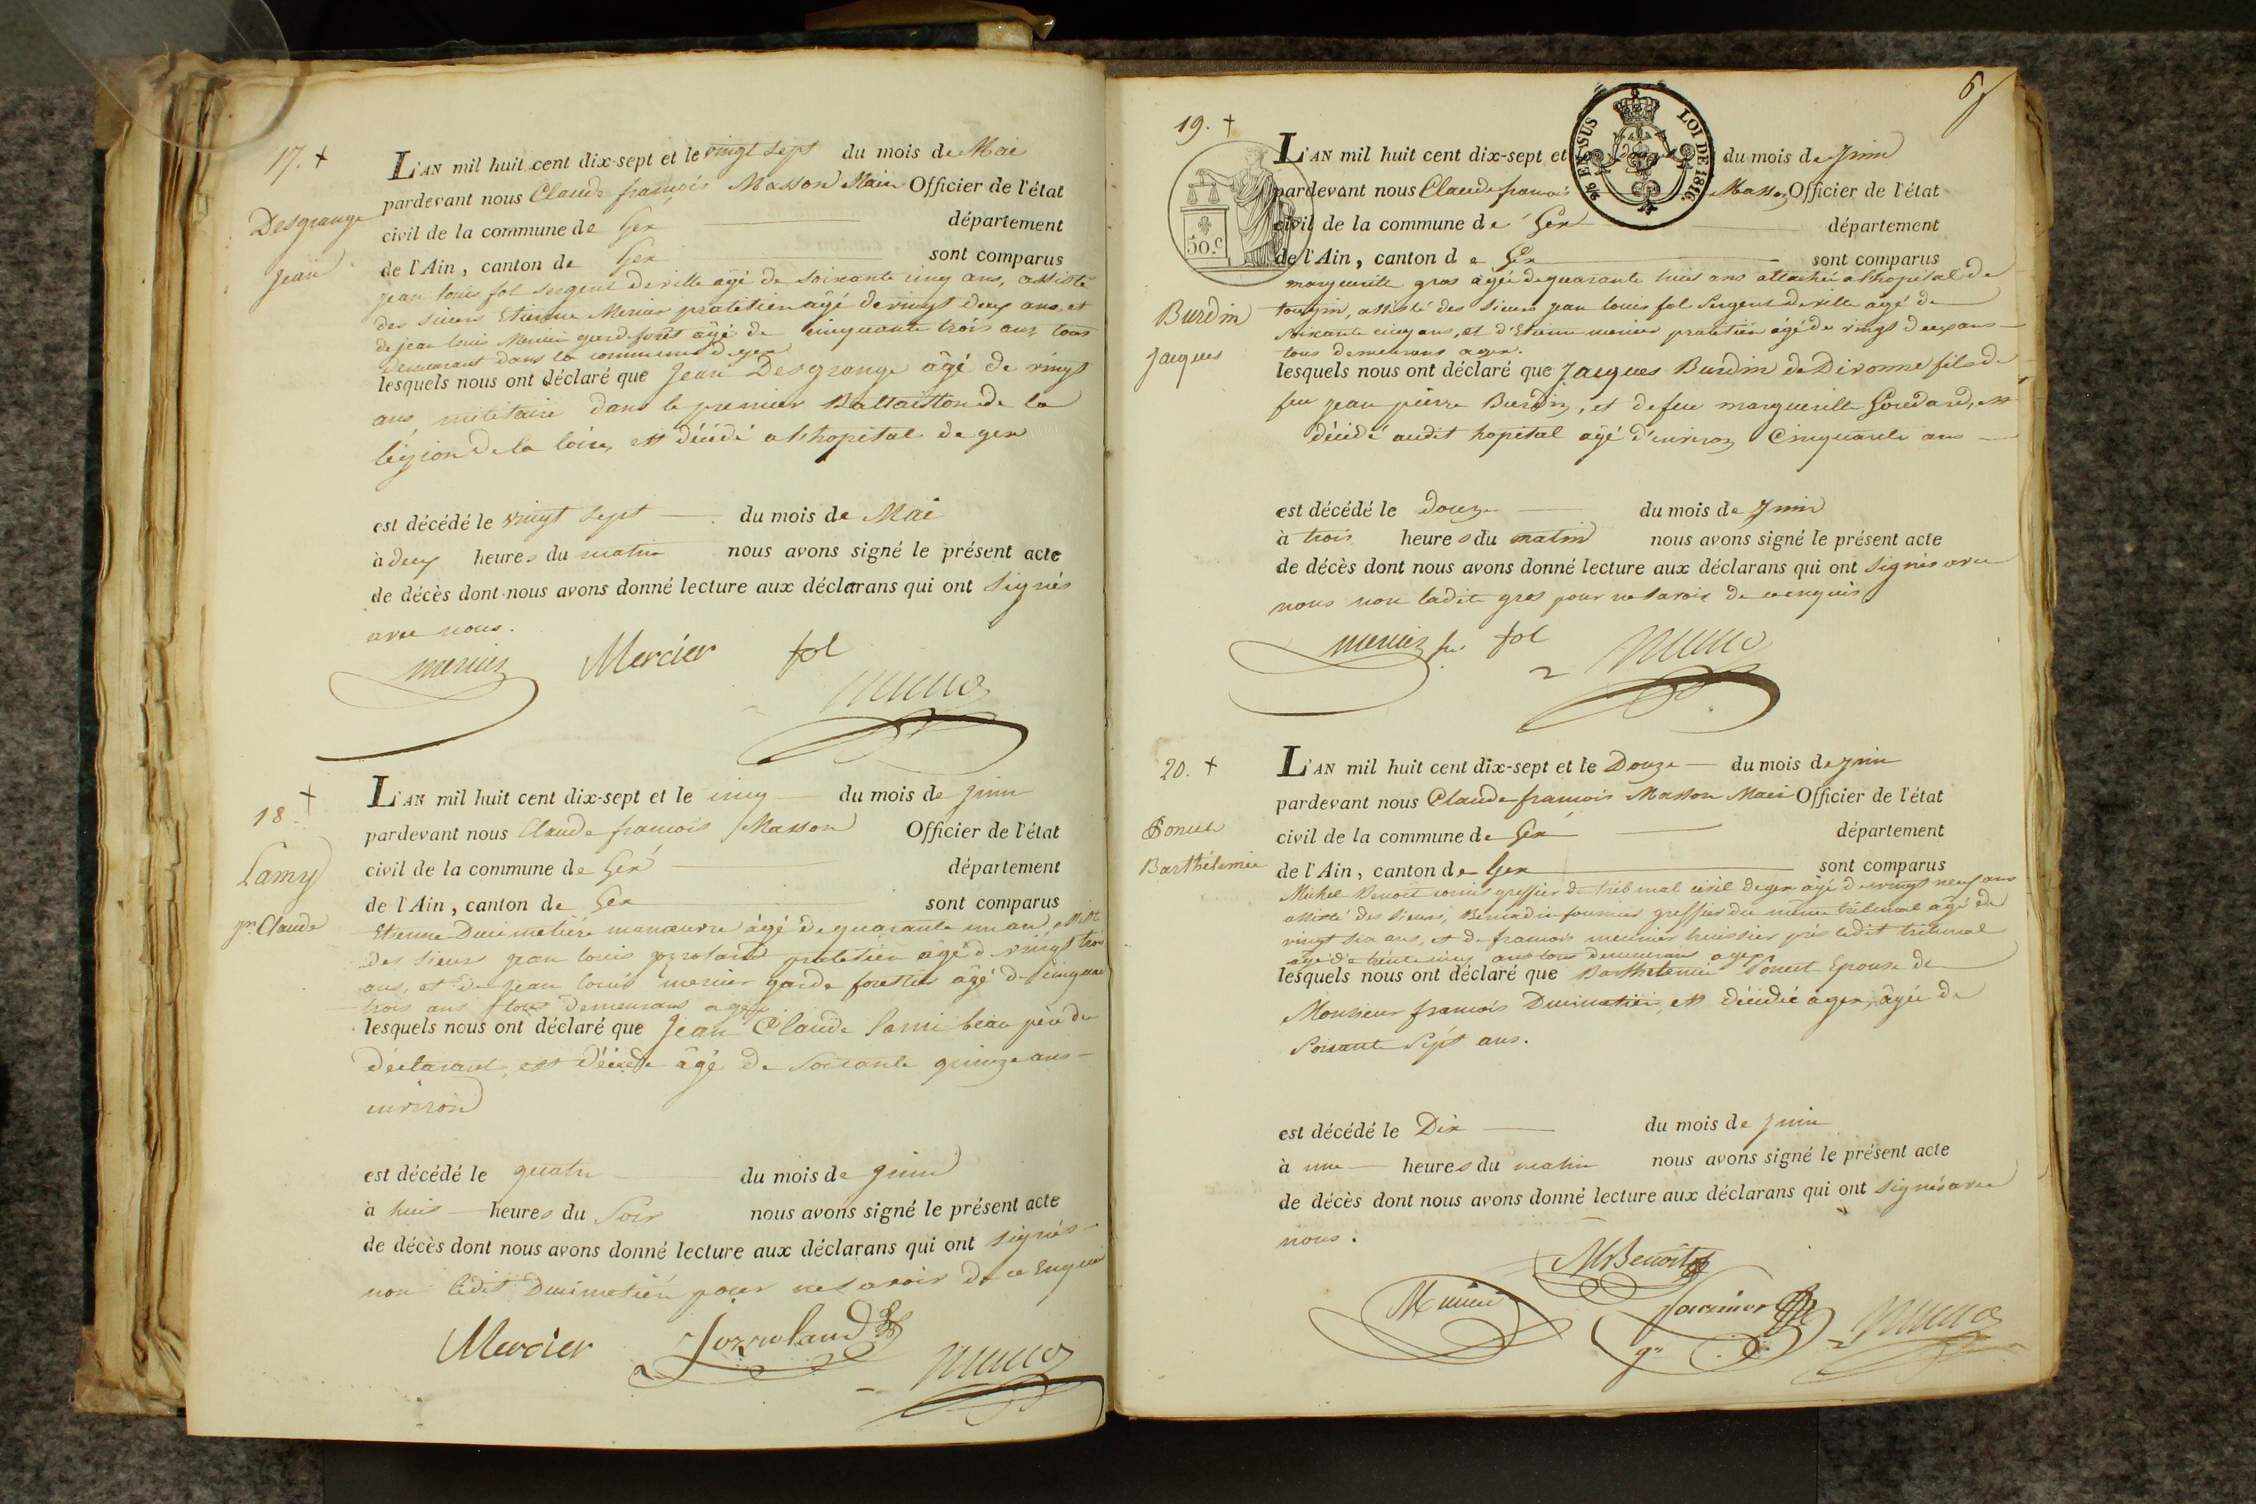 17. +
Desgrange
Jean
L'AN mil huit cent dix-sept et le vingt sept du mois de Mai
pardevant nous Claude françois Masson Maire Officier de l'état
civil de la commune de Gex département
de l'Ain, canton de Gex sont comparus
jean louis fol sergent de ville agé de soixante cinq ans, assisté
des sieurs Etienne Mercier praticien agé de vingt deux ans, et
de jean louis Mercier garde forêt agé de cinquante trois ans tous
demeurant dans la commune de gex
lesquels nous ont déclaré que Jean Desgrange âgé de vingt
ans, militaire dans le premier Battaillon de la
légion de la loire, est décédé a l'hopital de gex
est décédé le vingt sept du mois de Mai
à deux heures du matin nous avons signé le présent acte
de décès dont nous avons donné lecture aux déclarans qui ont signés
avec nous.
mercier Mercier fol
18. +
Lamy
jn. Claude
L'AN mil huit cent dix-sept et le cinq du mois de juin
pardevant nous Claude françois Masson Officier de l'état
civil de la commune de Gex département
de l'Ain, canton de Gex sont comparus
Etienne Ducimetière manœuvre âgé de quarante un an, assisté
des sieurs jean louis jozroland praticien agé de vingt trois
ans, et de jean louis mercier garde forestier âgé de cinquante
trois ans tous demeurans a gex
lesquels nous ont déclaré que Jean Claude Lami beau père du
déclarant, est décédé âgé de soixante quinze ans
environ
est décédé le quatre du mois de juin
à huit heures du soir nous avons signé le présent acte
de décès dont nous avons donné lecture aux déclarans qui ont signés
non ledit Ducimetière pour ne savoir de ce Enquis
Mercier Jozroland
6
19. +
2/6 EN-SUS LOI DE 1816.
50.c
Burdin
Jacques
L'AN mil huit cent dix-sept et du mois de Juin
pardevant nous Claude françois Masson Officier de l'état
civil de la commune de Gex département
de l'Ain, canton de Gex sont comparus
marguerite gros agée de quarante huit ans attachée a l'hopital de
tougin, assisté des sieurs jean louis fol sergent de ville agé de
soixante cinq ans, et d'Etienne mercier praticien âgé de vingt deux ans
tous demeurans a gex.
lesquels nous ont déclaré que Jacques Burdin de Divonne fils de
feu jean pierre Burdin, et de feue marguerite Goudard, est
décédé audit hopital agé d'environ Cinquante ans
est décédé le douze du mois de Juin
à trois heures du matin nous avons signé le présent acte
de décès dont nous avons donné lecture aux déclarans qui ont signés avec
nous non ladite gros pour ne savoir de ce enquis
mercier fol
20. +
Barthélemie
L'AN mil huit cent dix-sept et le Douze du mois de juin
pardevant nous Claude françois Masson Maire Officier de l'état
civil de la commune de Gex département
de l'Ain, canton de Gex sont comparus
Michel Benoit commis greffier du tribunal civil de gex âgé de vingt neuf ans
assisté des sieurs, fournier greffier du même tribunal âgé de
vingt six ans, et de françois meunier huissier près ledit tribunal
agé de trente cinq ans tous demeurans a gex
lesquels nous ont déclaré que Barthelemie Epouse de
Monsieur françois Ducimetière, est décédée a gex, âgée de
soixante sept ans.
est décédé le Dix du mois de juin
à une heures du matin nous avons signé le présent acte
de décès dont nous avons donné lecture aux déclarans qui ont signés avec
nous.
M Benoit